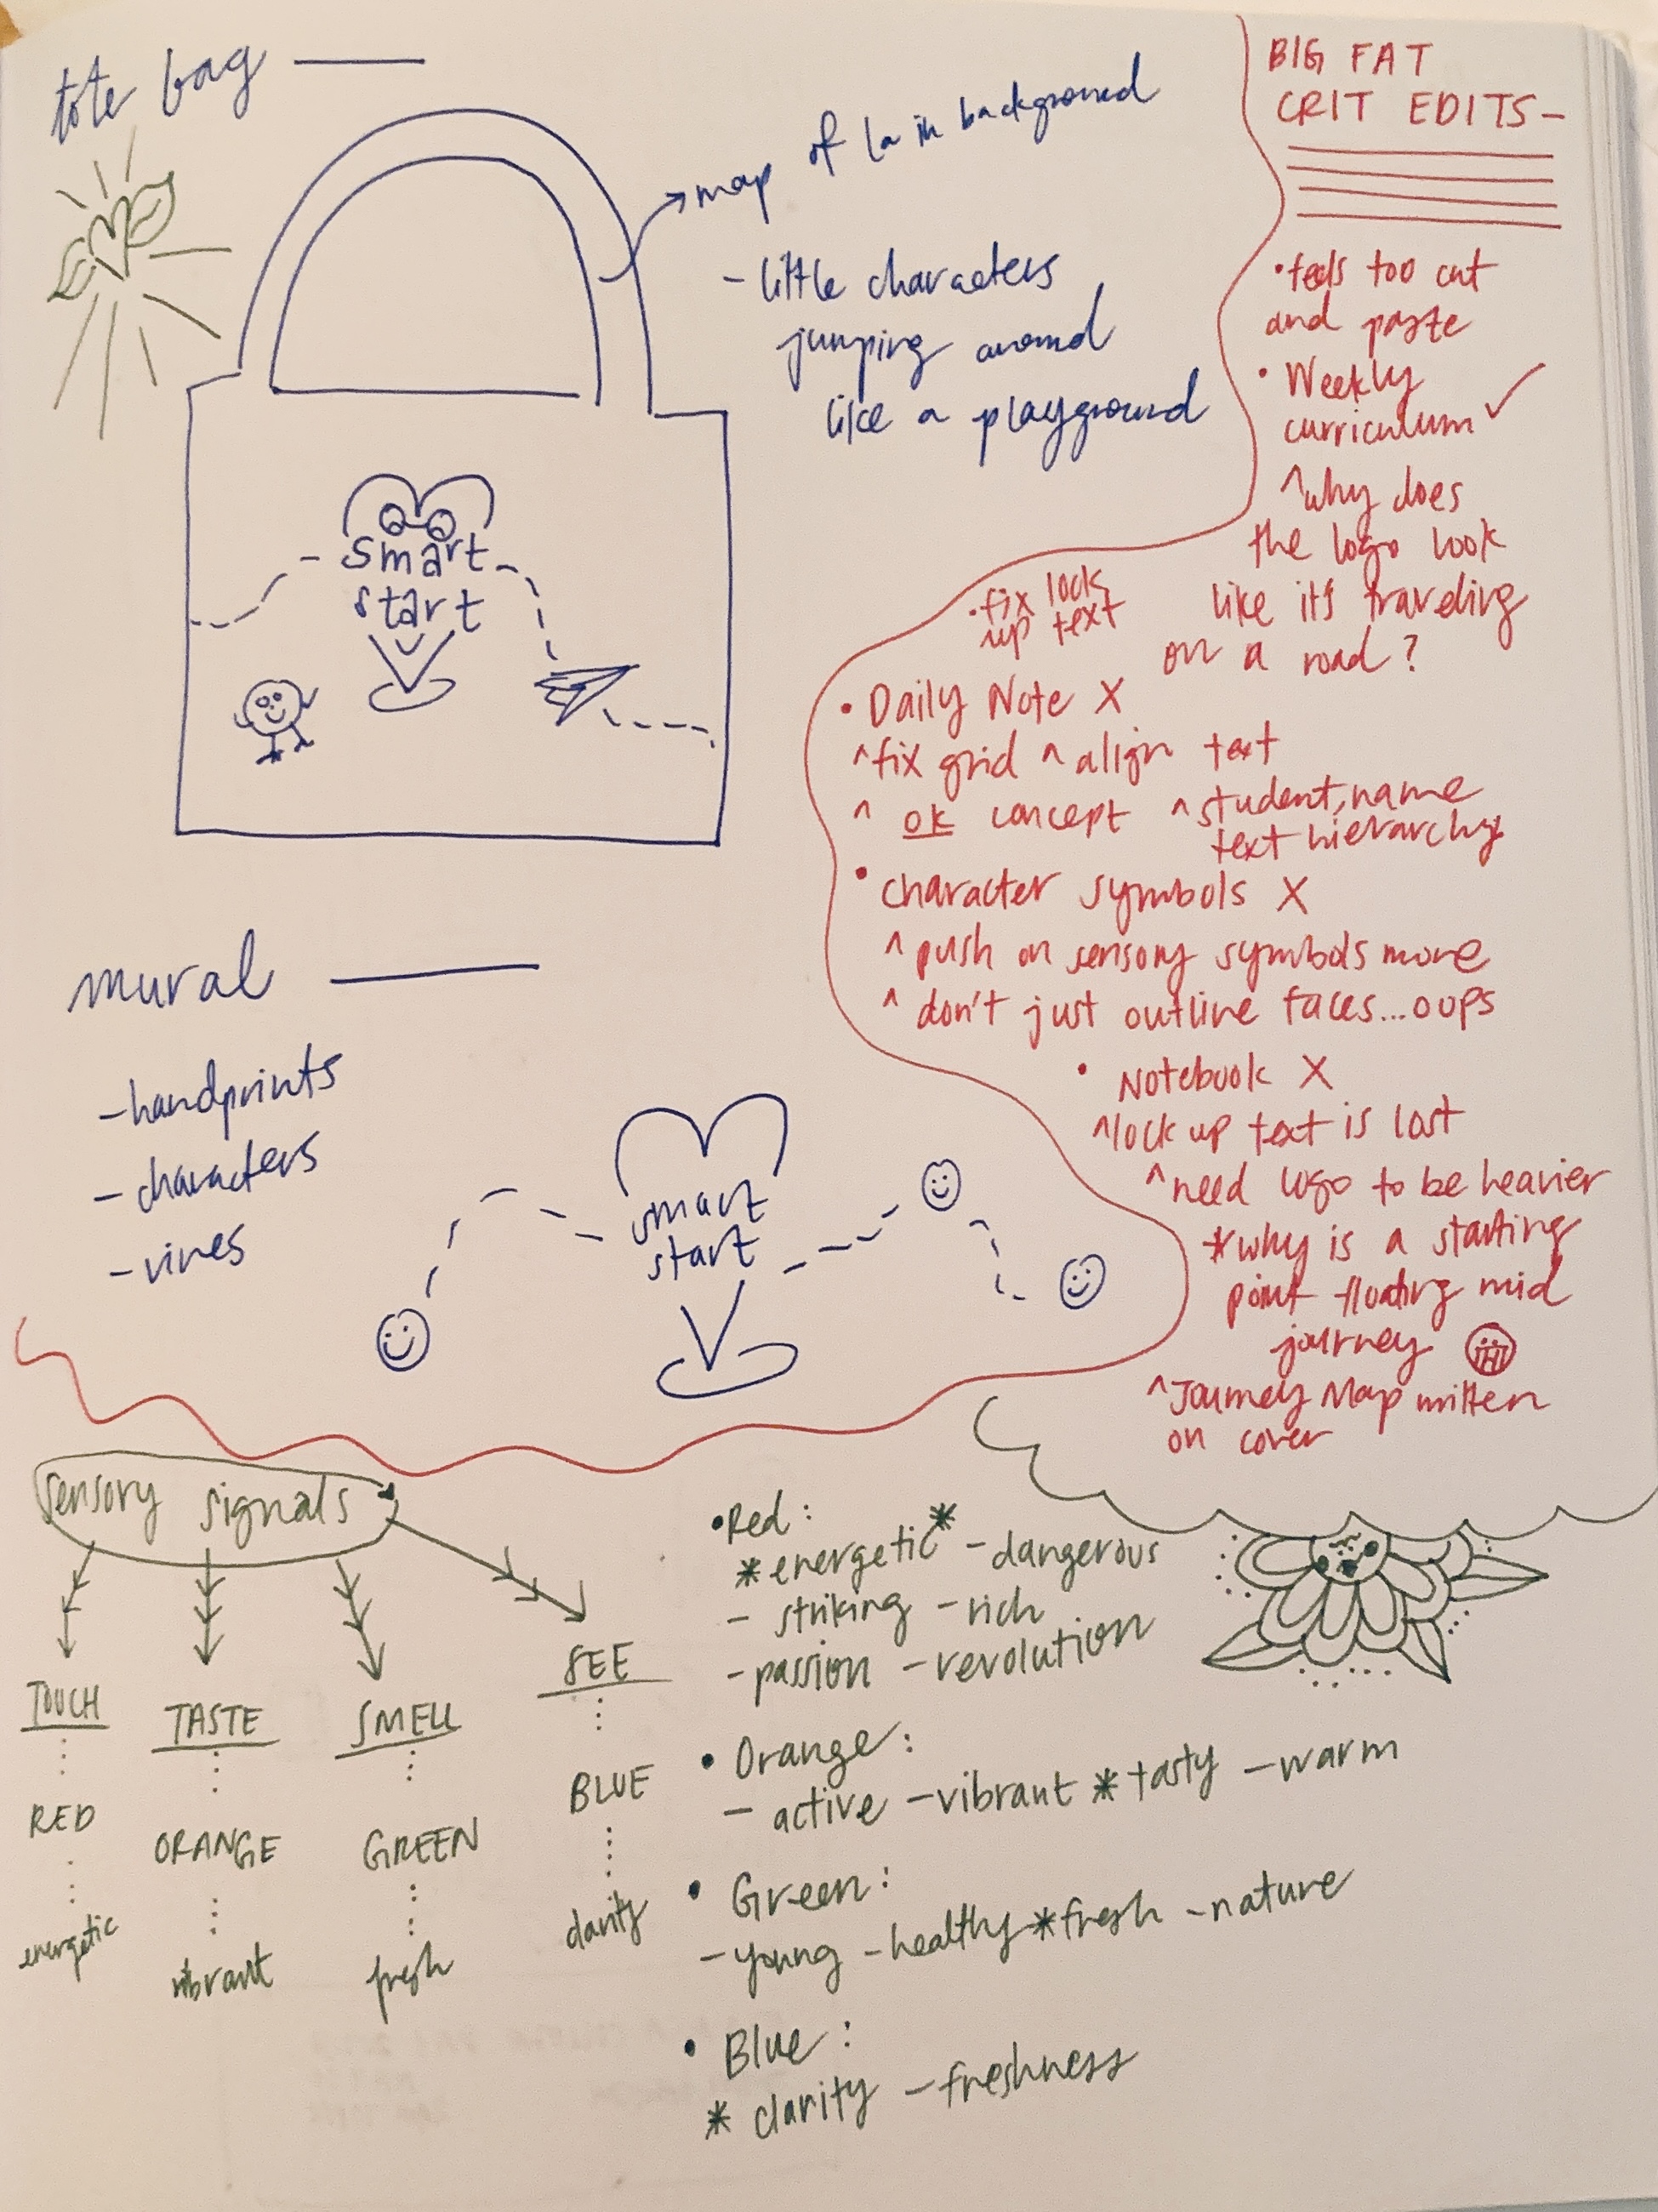 tote bag —
→ map of la in background
- little characters
jumping around
like a playground
smart
start
mural —
- handprints
- characters
- vines
smart
start
BIG FAT
CRIT EDITS -
• feels too cut
and paste
• Weekly
curriculum ✓
^ why does
the logo look
like it's traveling
on a road?
• fix lock
up text
• Daily Note X
^ fix grid ^ align text
^ ok concept ^ student, name
text hierarchy
• character symbols X
^ push on sensory symbols more
^ don't just outline faces...oups
• Notebook X
^ lock up text is lost
^ need logo to be heavier
* why is a starting
point floating mid
journey
^ Journey Map written
on cover
sensory signals
TOUCH TASTE SMELL SEE
RED ORANGE GREEN BLUE
energetic vibrant fresh clarity
• Red:
* energetic * - dangerous
- striking - rich
- passion - revolution
• Orange:
- active - vibrant * tasty - warm
• Green:
- young - healthy * fresh - nature
• Blue:
* clarity - freshness